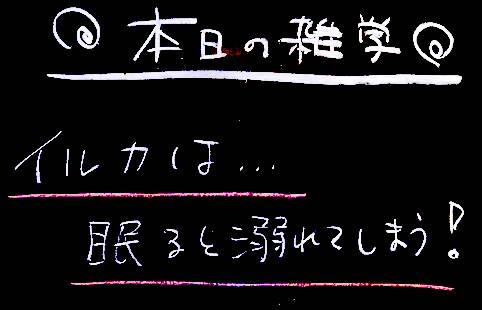 本日の雑学
イルカは...
眠ると溺れてしまう!